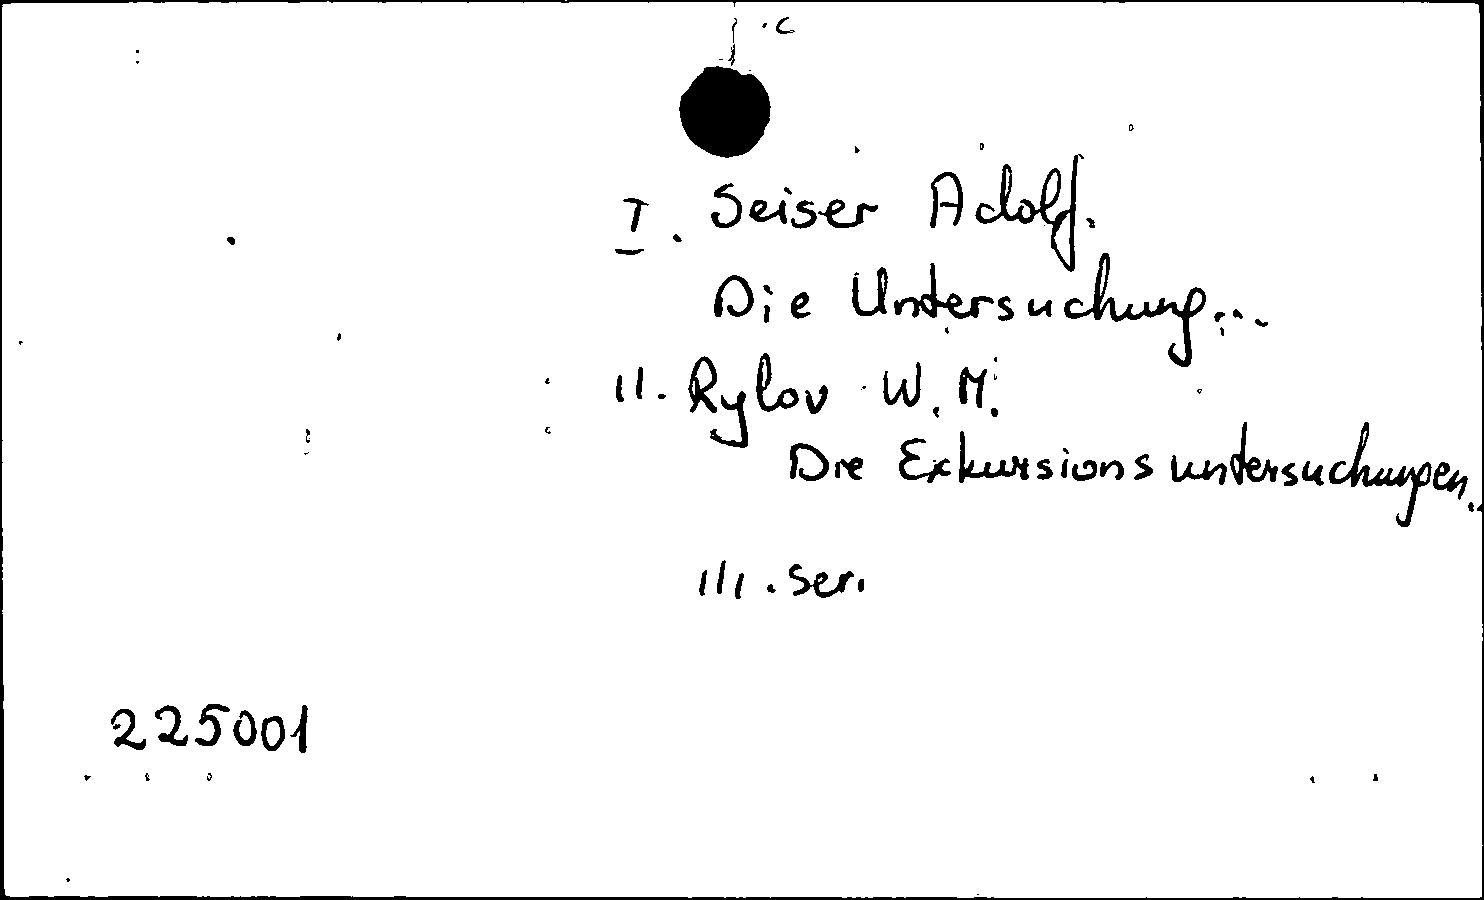 I. Seiser Adolf.
Die Untersuchung...
II. Rylov W. M.
Die Exkursionsuntersuchungen..
III. Ser.
225001